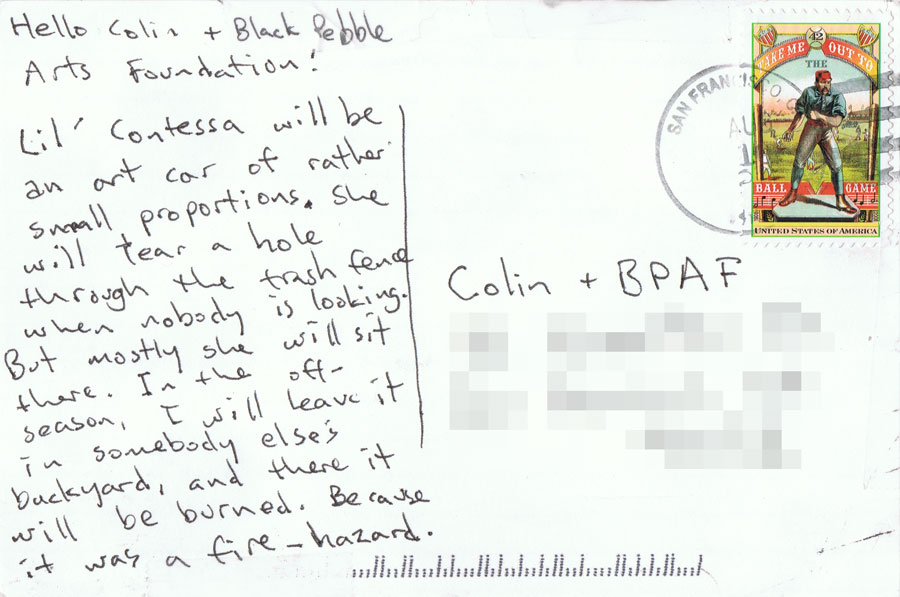 Hello Colin + Black Pebble
Arts Foundation!
Lil' Contessa will be
an art car of rather
small proportions. She
will tear a hole
through the trash fence
when nobody is looking.
But mostly she will sit
there. In the off-
season, I will leave it
in somebody else's
backyard, and there it
will be burned. Because
it was a fire-hazard.
SAN FRANCISCO
AU
42
TAKE ME OUT TO
THE
BALL GAME
UNITED STATES OF AMERICA
Colin + BPAF